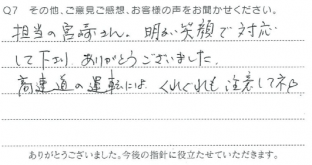 Q7 その他、ご意見ご感想、お客様の声をお聞かせください。
担当の宮崎さん。明るい笑顔で対応
して下さり ありがとうございました。
高速道の運転には くれぐれも 注意してネ。
ありがとうございました。今後の指針に役立たせていただきます。